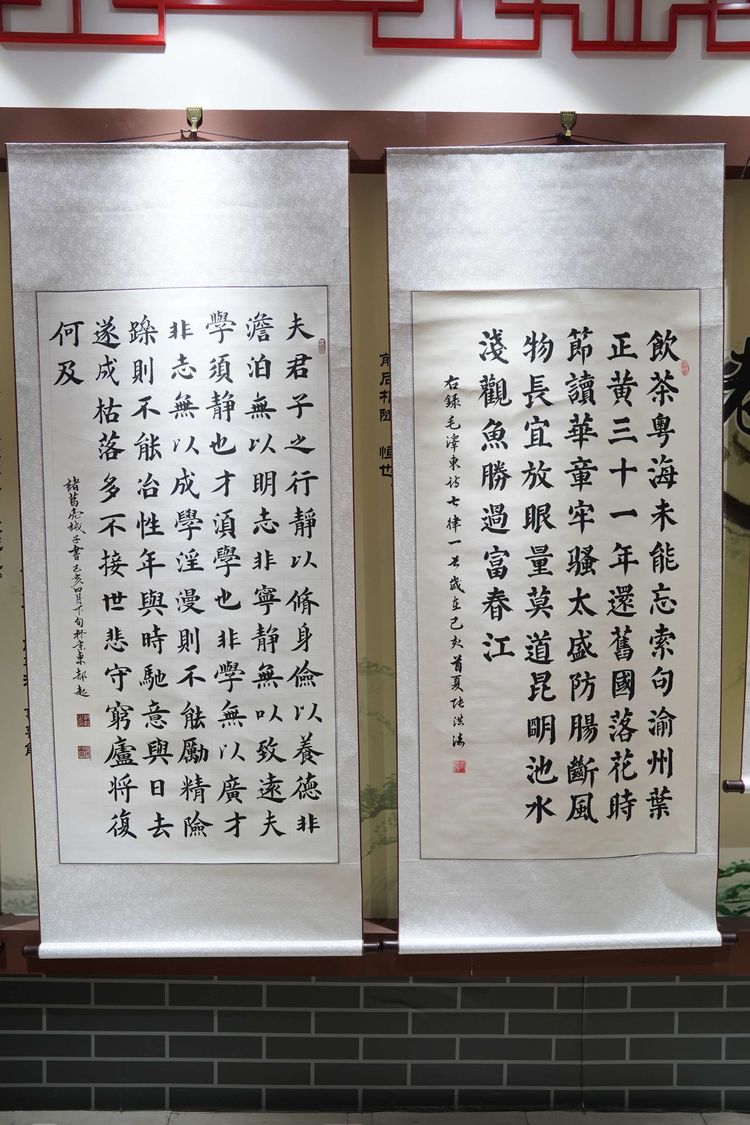 飲茶粤海未能忘索句渝州葉
正黄三十一年還舊國落花時
節讀華章牢騷太盛防腸斷風
物長宜放眼量莫道昆明池水
淺觀魚勝過富春江
右錄毛澤東詩七律一首歲在己亥首夏
夫君子之行靜以脩身儉以養德非
澹泊無以明志非寧靜無以致遠夫
學須静也才湏學也非學無以廣才
非志無以成學淫漫則不能勵精險
躁則不能冶性年與時馳意與日去
遂成枯落多不接世悲守窮廬将復
何及
諸葛亮誡子書己亥四月下旬於京東郝起